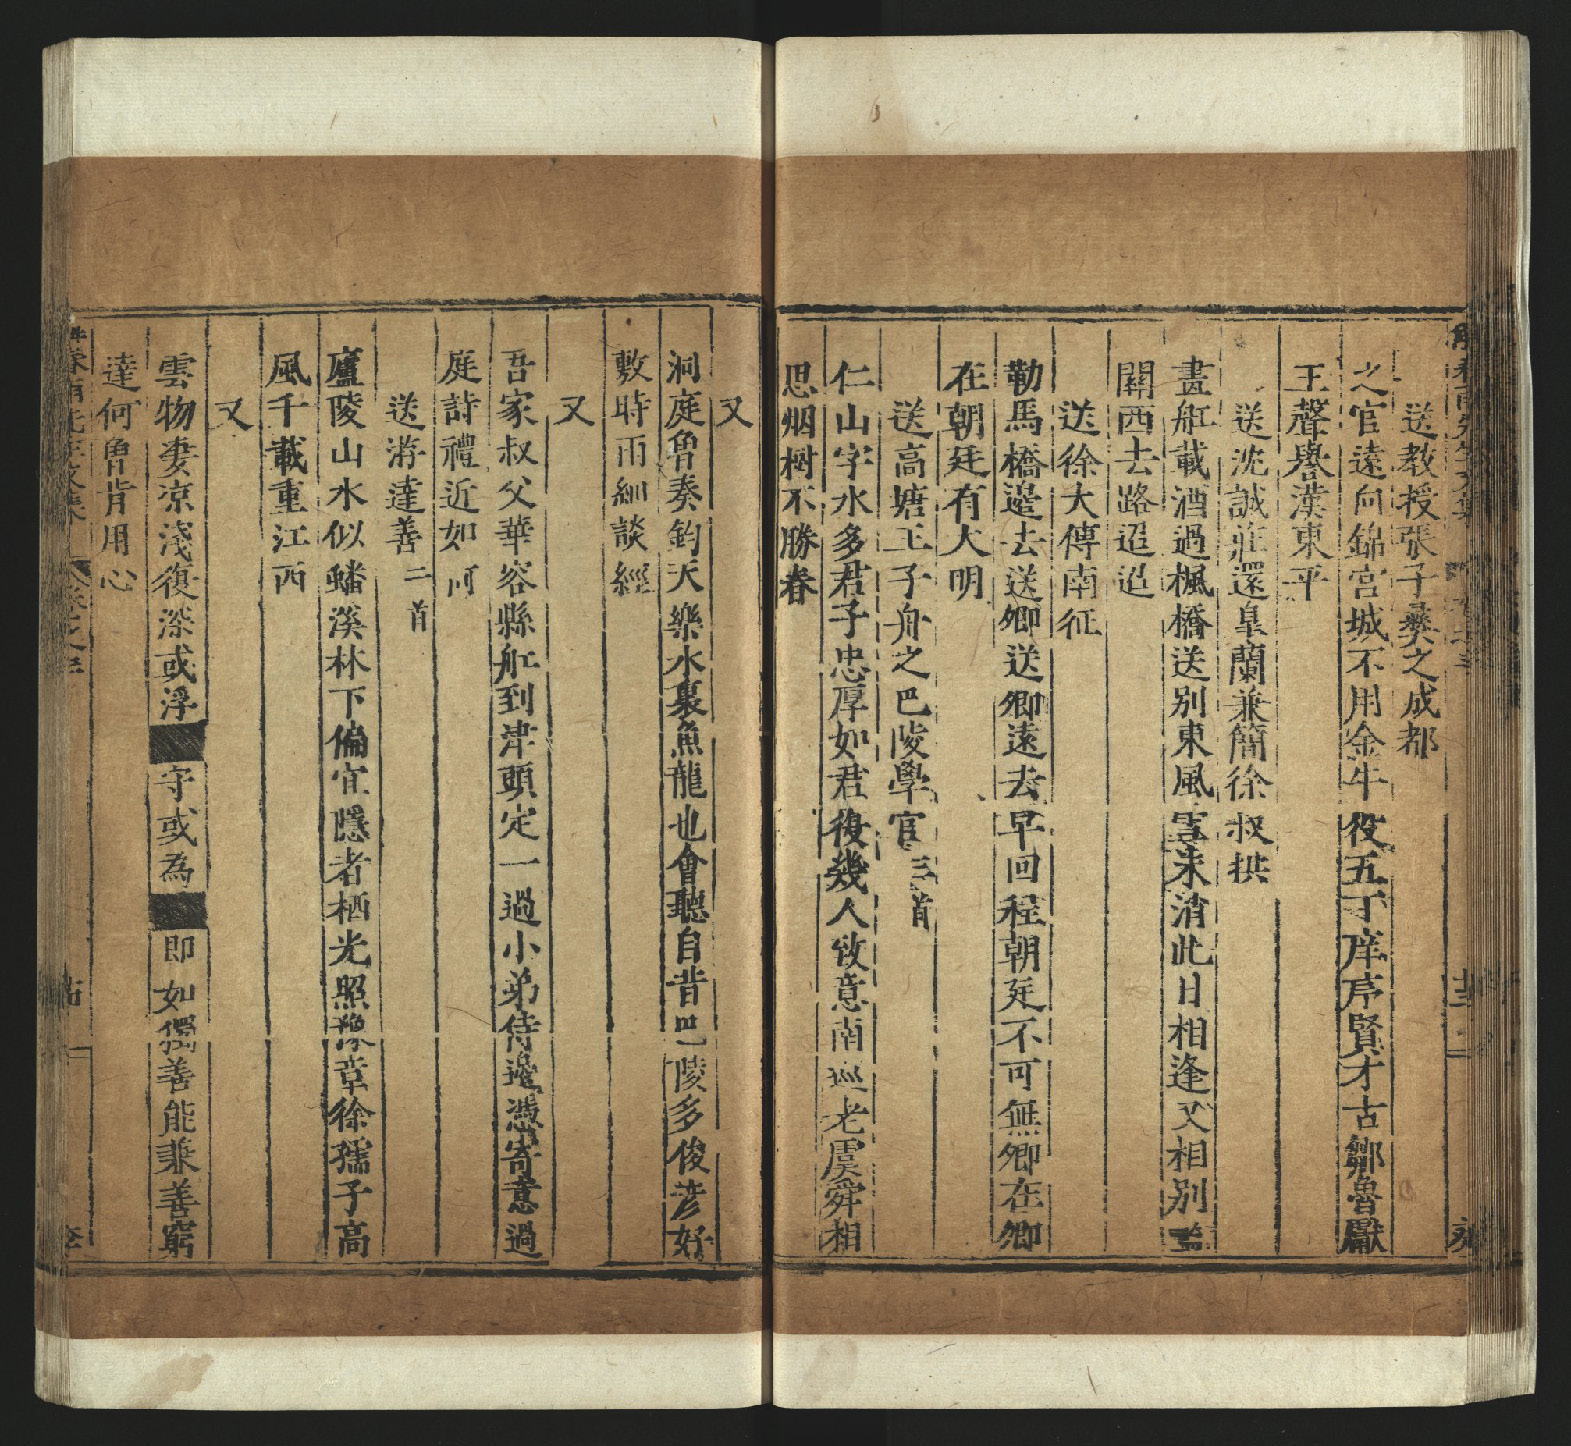 送教授張子彝之成都
之官遠向錦宮城不用金牛役五丁庠序賢才古鄒魯獻
王聲譽漢東平
送沈誠莊還皐蘭兼簡徐叔拱
畫舡載酒過楓橋送別東風雪未消此日相逢又相別
關西去路迢迢
送徐大傳南征
勒馬橋邊去送卿送卿遠去早回程朝廷不可無卿在卿
在朝廷有大明
送高塘王子舟之巴陵學官三首
仁山字水多君子忠厚如君後幾人致意南巡老虞舜相
思烟樹不勝春
又
洞庭魯奏鈞天樂水裏魚龍也會聽自昔巴陵多俊彥好
敷時雨細談經
又
吾家叔父華容縣舡到津頭定一過小弟侍邊憑寄意過
庭詩禮近如何
送游達善二首
廬陵山水似蟠溪林下偏宜隱者栖光照豫章徐孺子高
風千載重江西
又
雲物妻凉淺復深或浮 守或為 即如獨善能兼善窮
達何魯肯用心